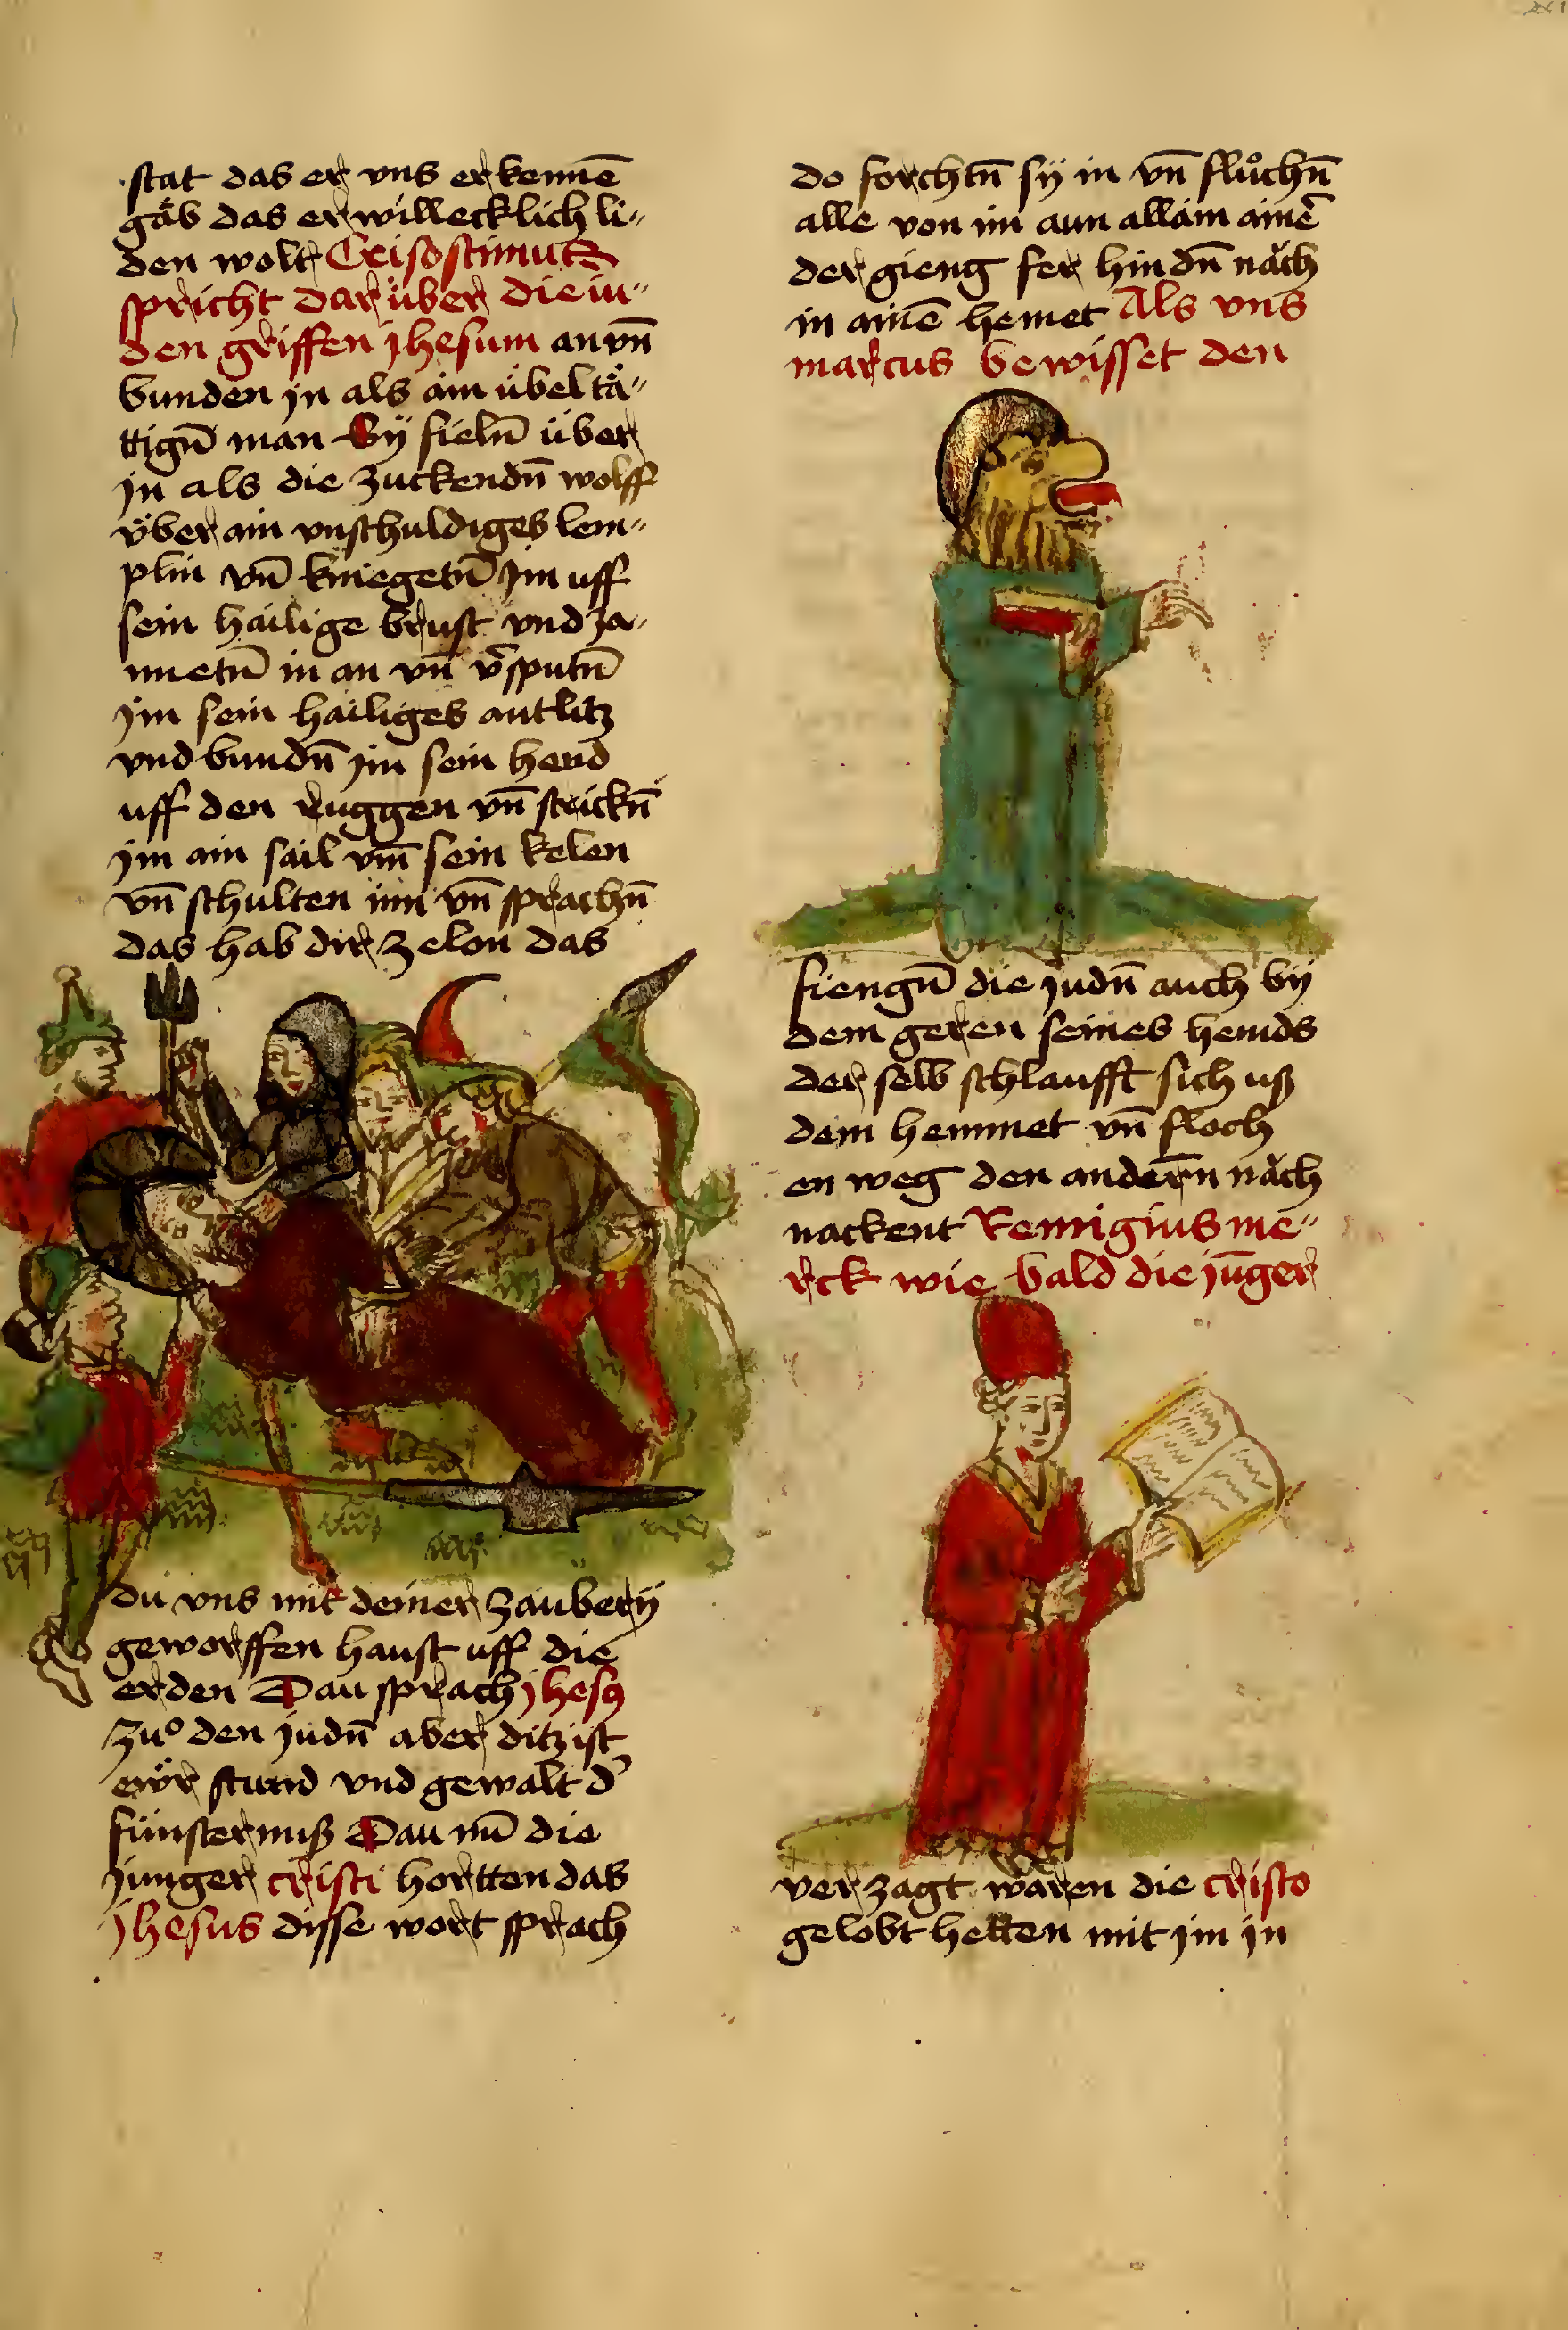 stat das er vns erkennē
gäb das er willecklich li„
den wolt Crisostimus
spricht dar über die iu„
den griffen jhesum an vn̄
bunden jn als ain übeltä„
ttign̄ man Sÿ fieln̄ über
jn als die zuckendn̄ wolff
über ain vnschuldiges lem„
plin vn̄ kniegetn̄ jm uff
sein hailige brust vnd za„
nnetn̄ in an vn̄ v̄sputn̄
jm sein hailiges antlitz
vnd bundn̄ jm sein hend
uff den ruggen vn̄ strickn̄
jm ain sail vm̄ sein kelen
vn̄ schulten inn vn̄ sprachn̄
das hab dir zelon das
du vns mit deiner zauberÿ
geworffen haust uff die
erden Dau sprach jhesꝰ
zuͦ den judn̄ aber ditz ist
ewr̈ stund vnd gewalt d̓
fünsternuß Dau nū die
junger cristi hortten das
jhesus disse wort sprach
do forchtn̄ sÿ in vn̄ fluͦchn̄
alle von im aun allain ainē
der gieng fer hindn̄ nǎch
in ainē hemet Als vns
marcus bewisset den
fiengn̄ die judn̄ auch bÿ
dem geren seines hemds
der selb schlaufft sich uß
dem hemmet vn̄ floch
en weg den andern̄ nǎch
nackent Remigius me„
rck wie bald die jūger
verzagt wǎren die cristo
gelobt hetten mit jm in